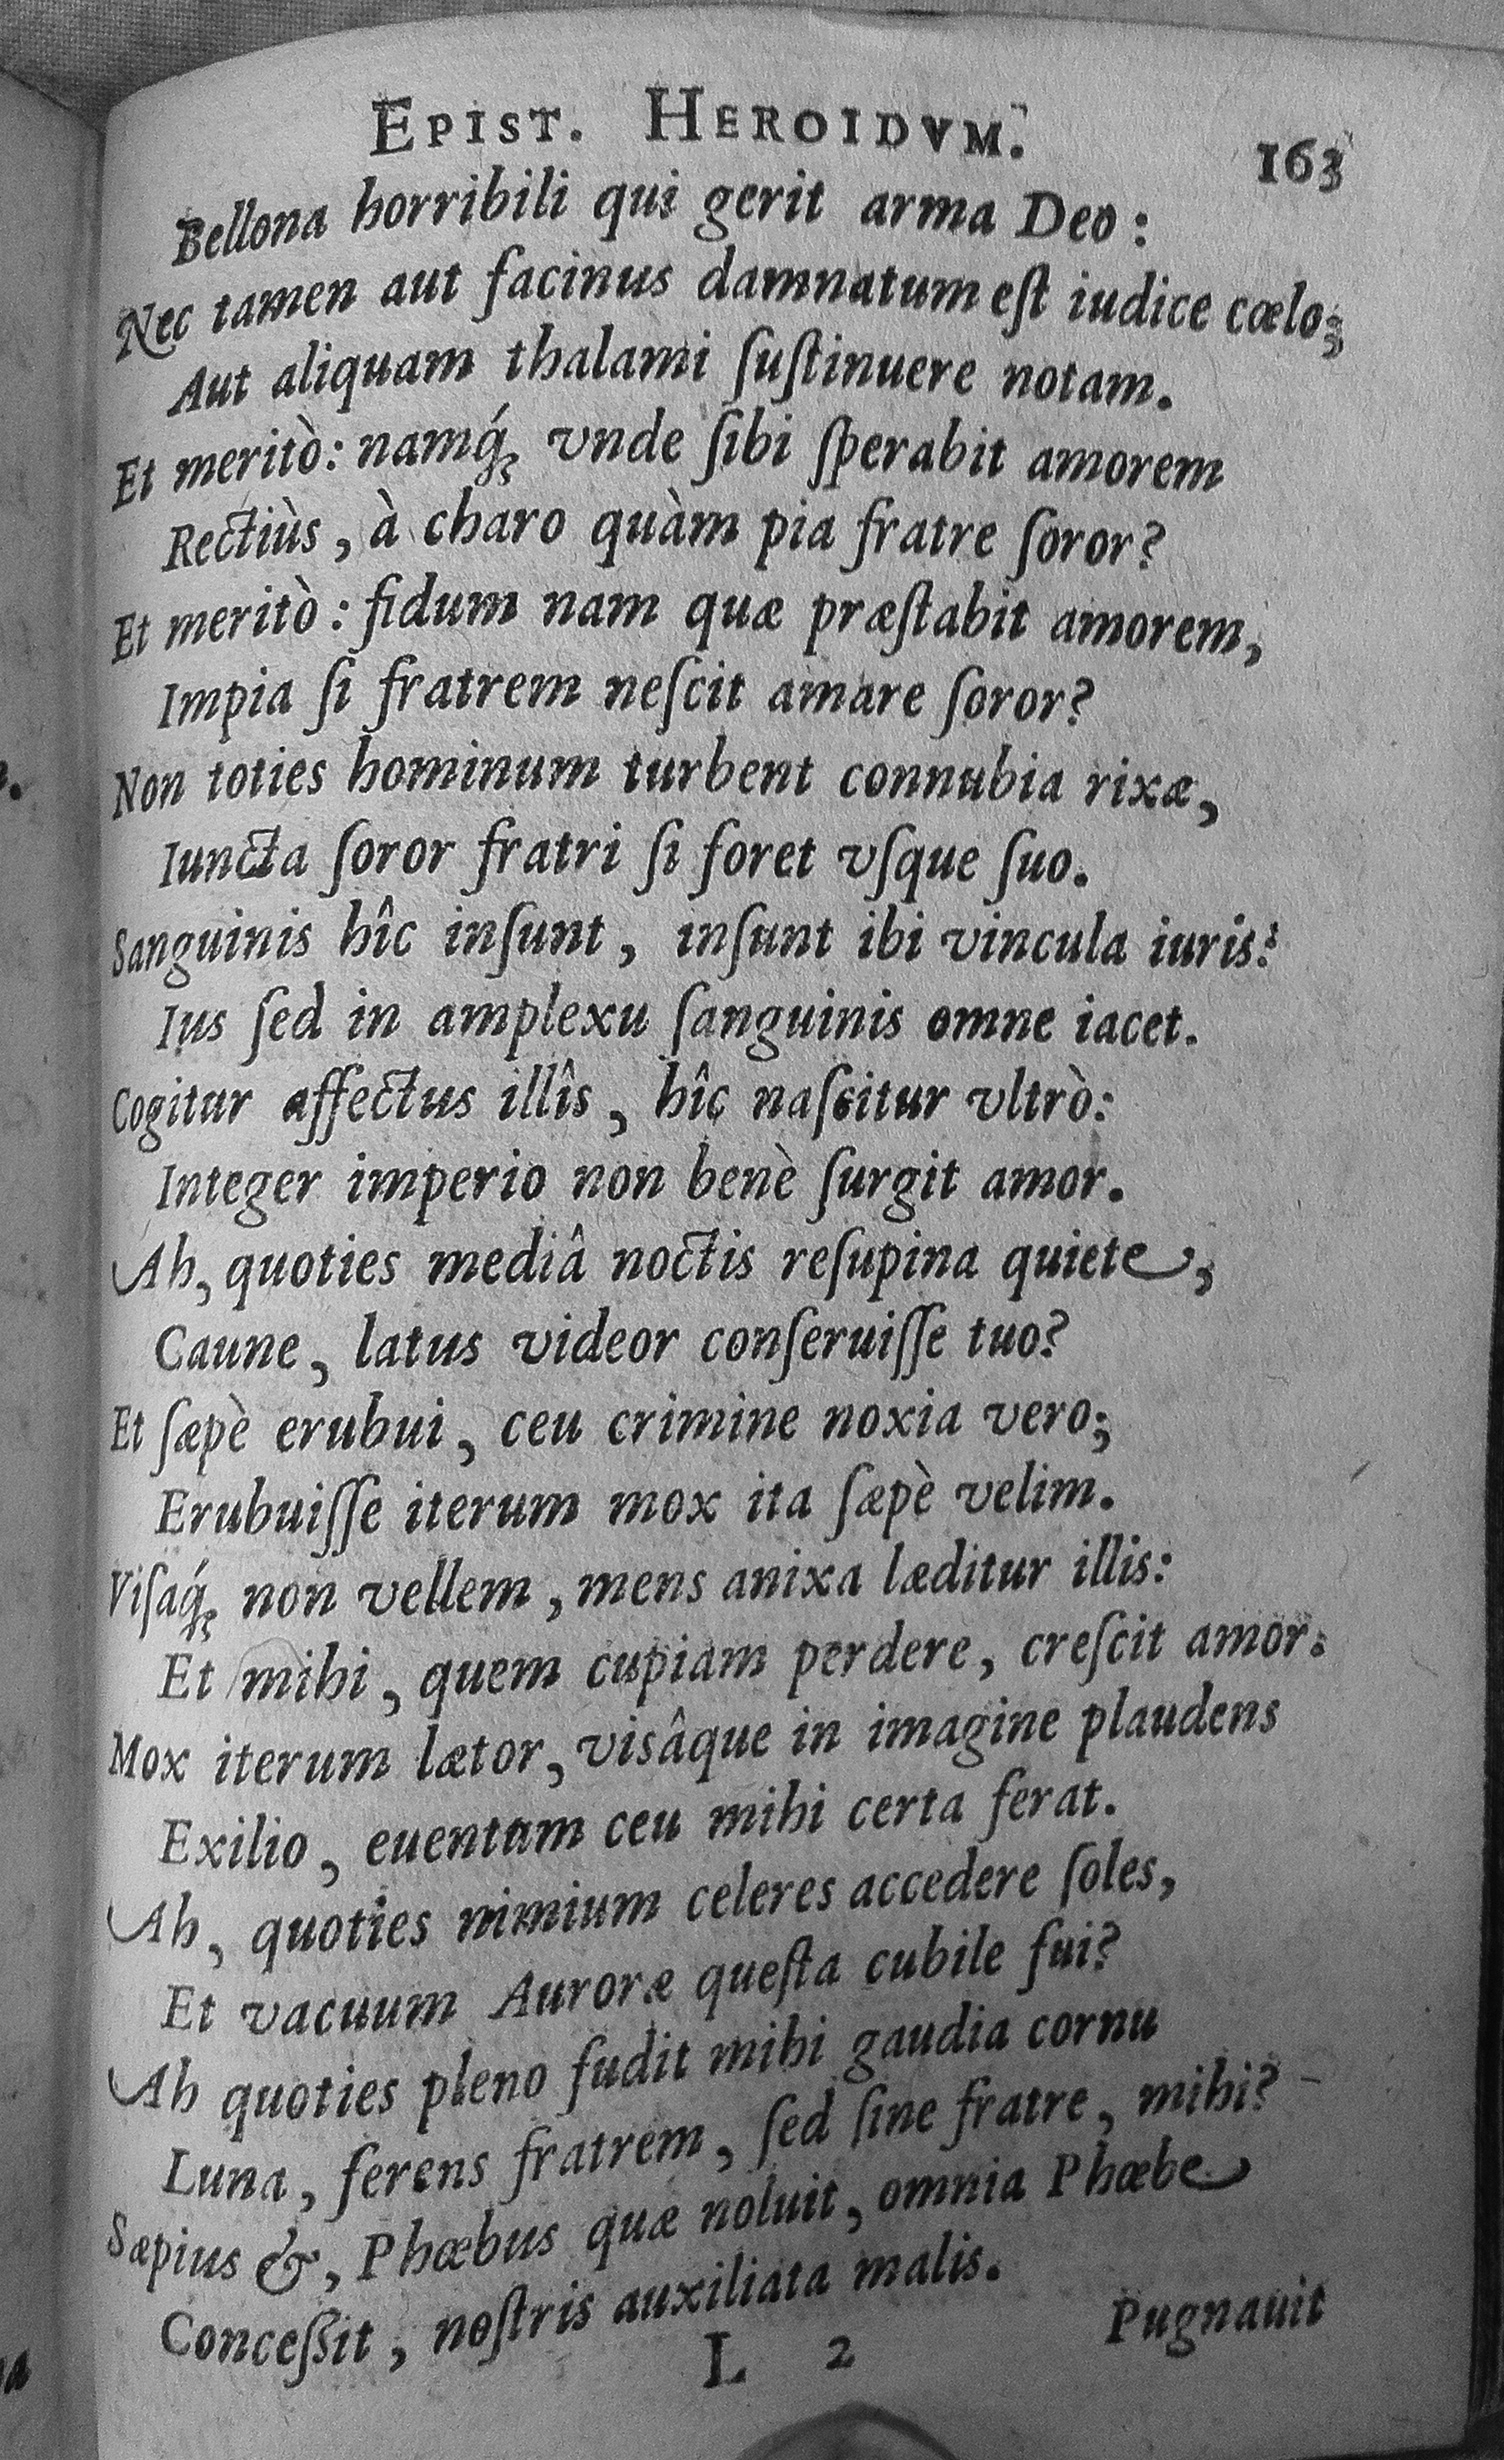 EPIST. HEROIDVM. 163
Bellona horribili qui gerit arma Deo:
Nec tamen aut facinus damnatum eſt iudice cœlo;
Aut aliquam thalami ſuſtinuere notam.
Et meritò: namq́ꝫ vnde ſibi ſperabit amorem
Rectiùs, à charo quàm pia fratre ſoror?
Et meritò: fidum nam quæ præſtabit amorem,
Impia ſi fratrem neſcit amare ſoror?
Non toties hominum turbent connubia rixæ,
Iuncta ſoror fratri ſi foret vſque ſuo.
Sanguinis hîc inſunt, inſunt ibi vincula iuris:
Ius ſed in amplexu ſanguinis omne iacet.
Cogitur affectus illîs, hîc naſcitur vltrò:
Integer imperio non benè ſurgit amor.
Ah, quoties mediâ noctis reſupina quiete,
Caune, latus videor conſeruiſſe tuo?
Et ſæpè erubui, ceu crimine noxia vero;
Erubuiſſe iterum mox ita ſæpè velim.
Viſaq́ꝫ non vellem, mens anixa læditur illis:
Et mihi, quem cupiam perdere, creſcit amor.
Mox iterum lætor, visâque in imagine plaudens
Exilio, euentum ceu mihi certa ferat.
Ah, quoties nimium celeres accedere ſoles,
Et vacuum Auroræ queſta cubile fui?
Ah quoties pleno fudit mihi gaudia cornu
Luna, ferens fratrem, ſed ſine fratre, mihi?
Sæpius &, Phœbus quæ noluit, omnia Phœbe
Conceßit, noſtris auxiliata malis.
L 2 Pugnauit